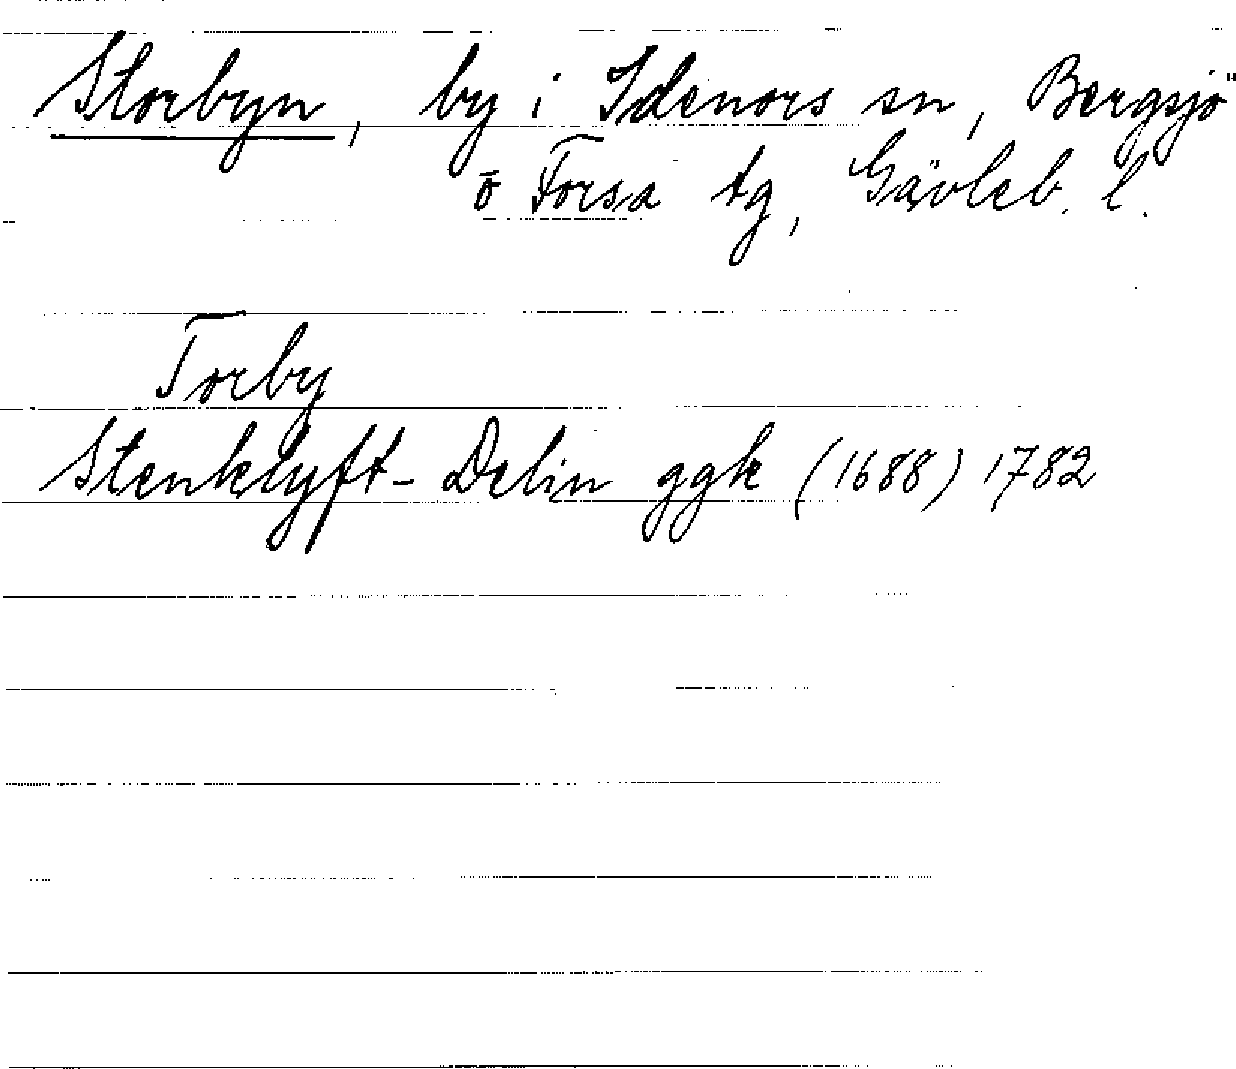 Storbyn, by i Idenors sn, Bergsjö
o Forsa tg, Gävleb. l.
Torby
Stenklyft- Delin ggk (1688) 1782